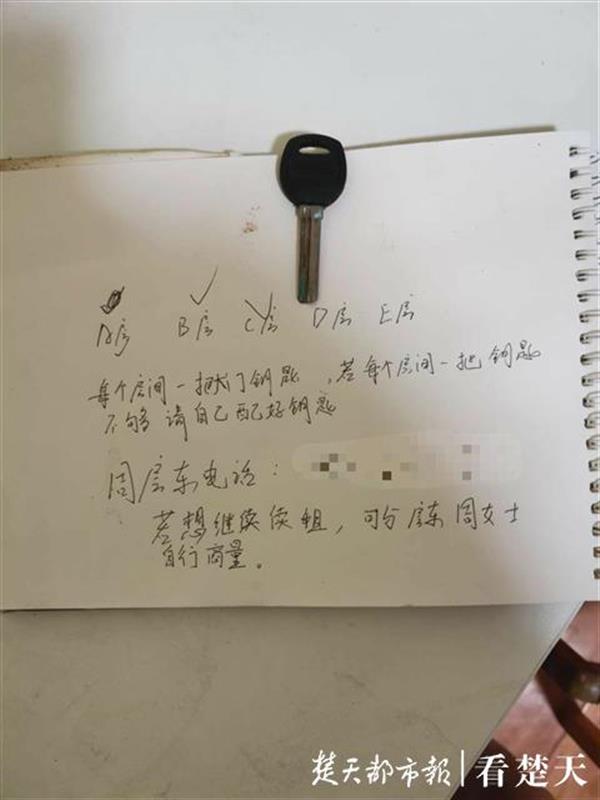 A房 B房 C房 D房 E房
每个房间一把大门钥匙，若每个房间一把钥匙
不够请自己配好钥匙
周房东电话：
若想继续续租，可与房东周女士
自行商量。
楚天都市報 看楚天